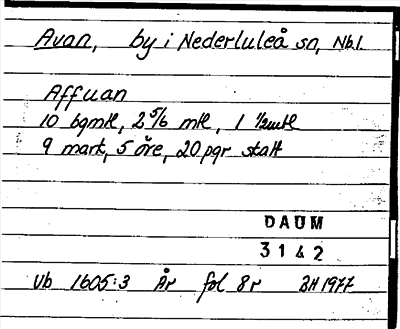 Avan, by i Nederluleå sn, Nbl.
Affuan
10 bgmtl, 2 5/6 mtl, 1 1/2mtl
9 mark, 5 öre, 20 pgr skatt
DAUM
3142
Vb 1605:3 År fol 8r BH 1977